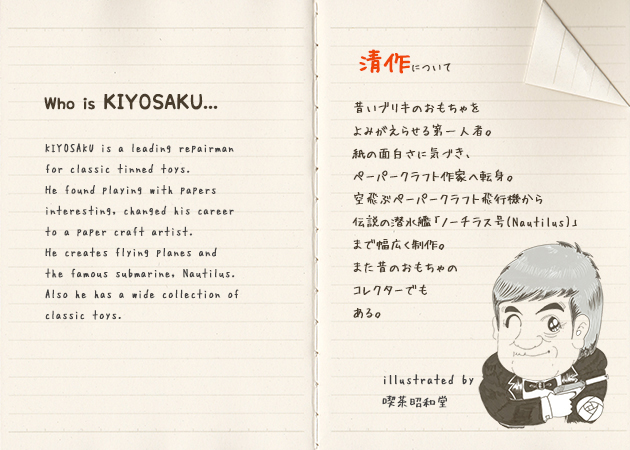 Who is KIYOSAKU...
KIYOSAKU is a leading repairman
for classic tinned toys.
He found playing with papers
interesting, changed his career
to a paper craft artist.
He creates flying planes and
the famous submarine, Nautilus.
Also he has a wide collection of
classic toys.
清作について
昔いブリキのおもちゃを
よみがえらせる第一人者。
紙の面白さに気づき、
ペーパークラフト作家へ転身。
空飛ぶペーパークラフト飛行機から
伝説の潜水艦「ノーチラス号(Nautilus)」
まで幅広く制作。
また昔のおもちゃの
コレクターでも
ある。
illustrated by
喫茶昭和堂